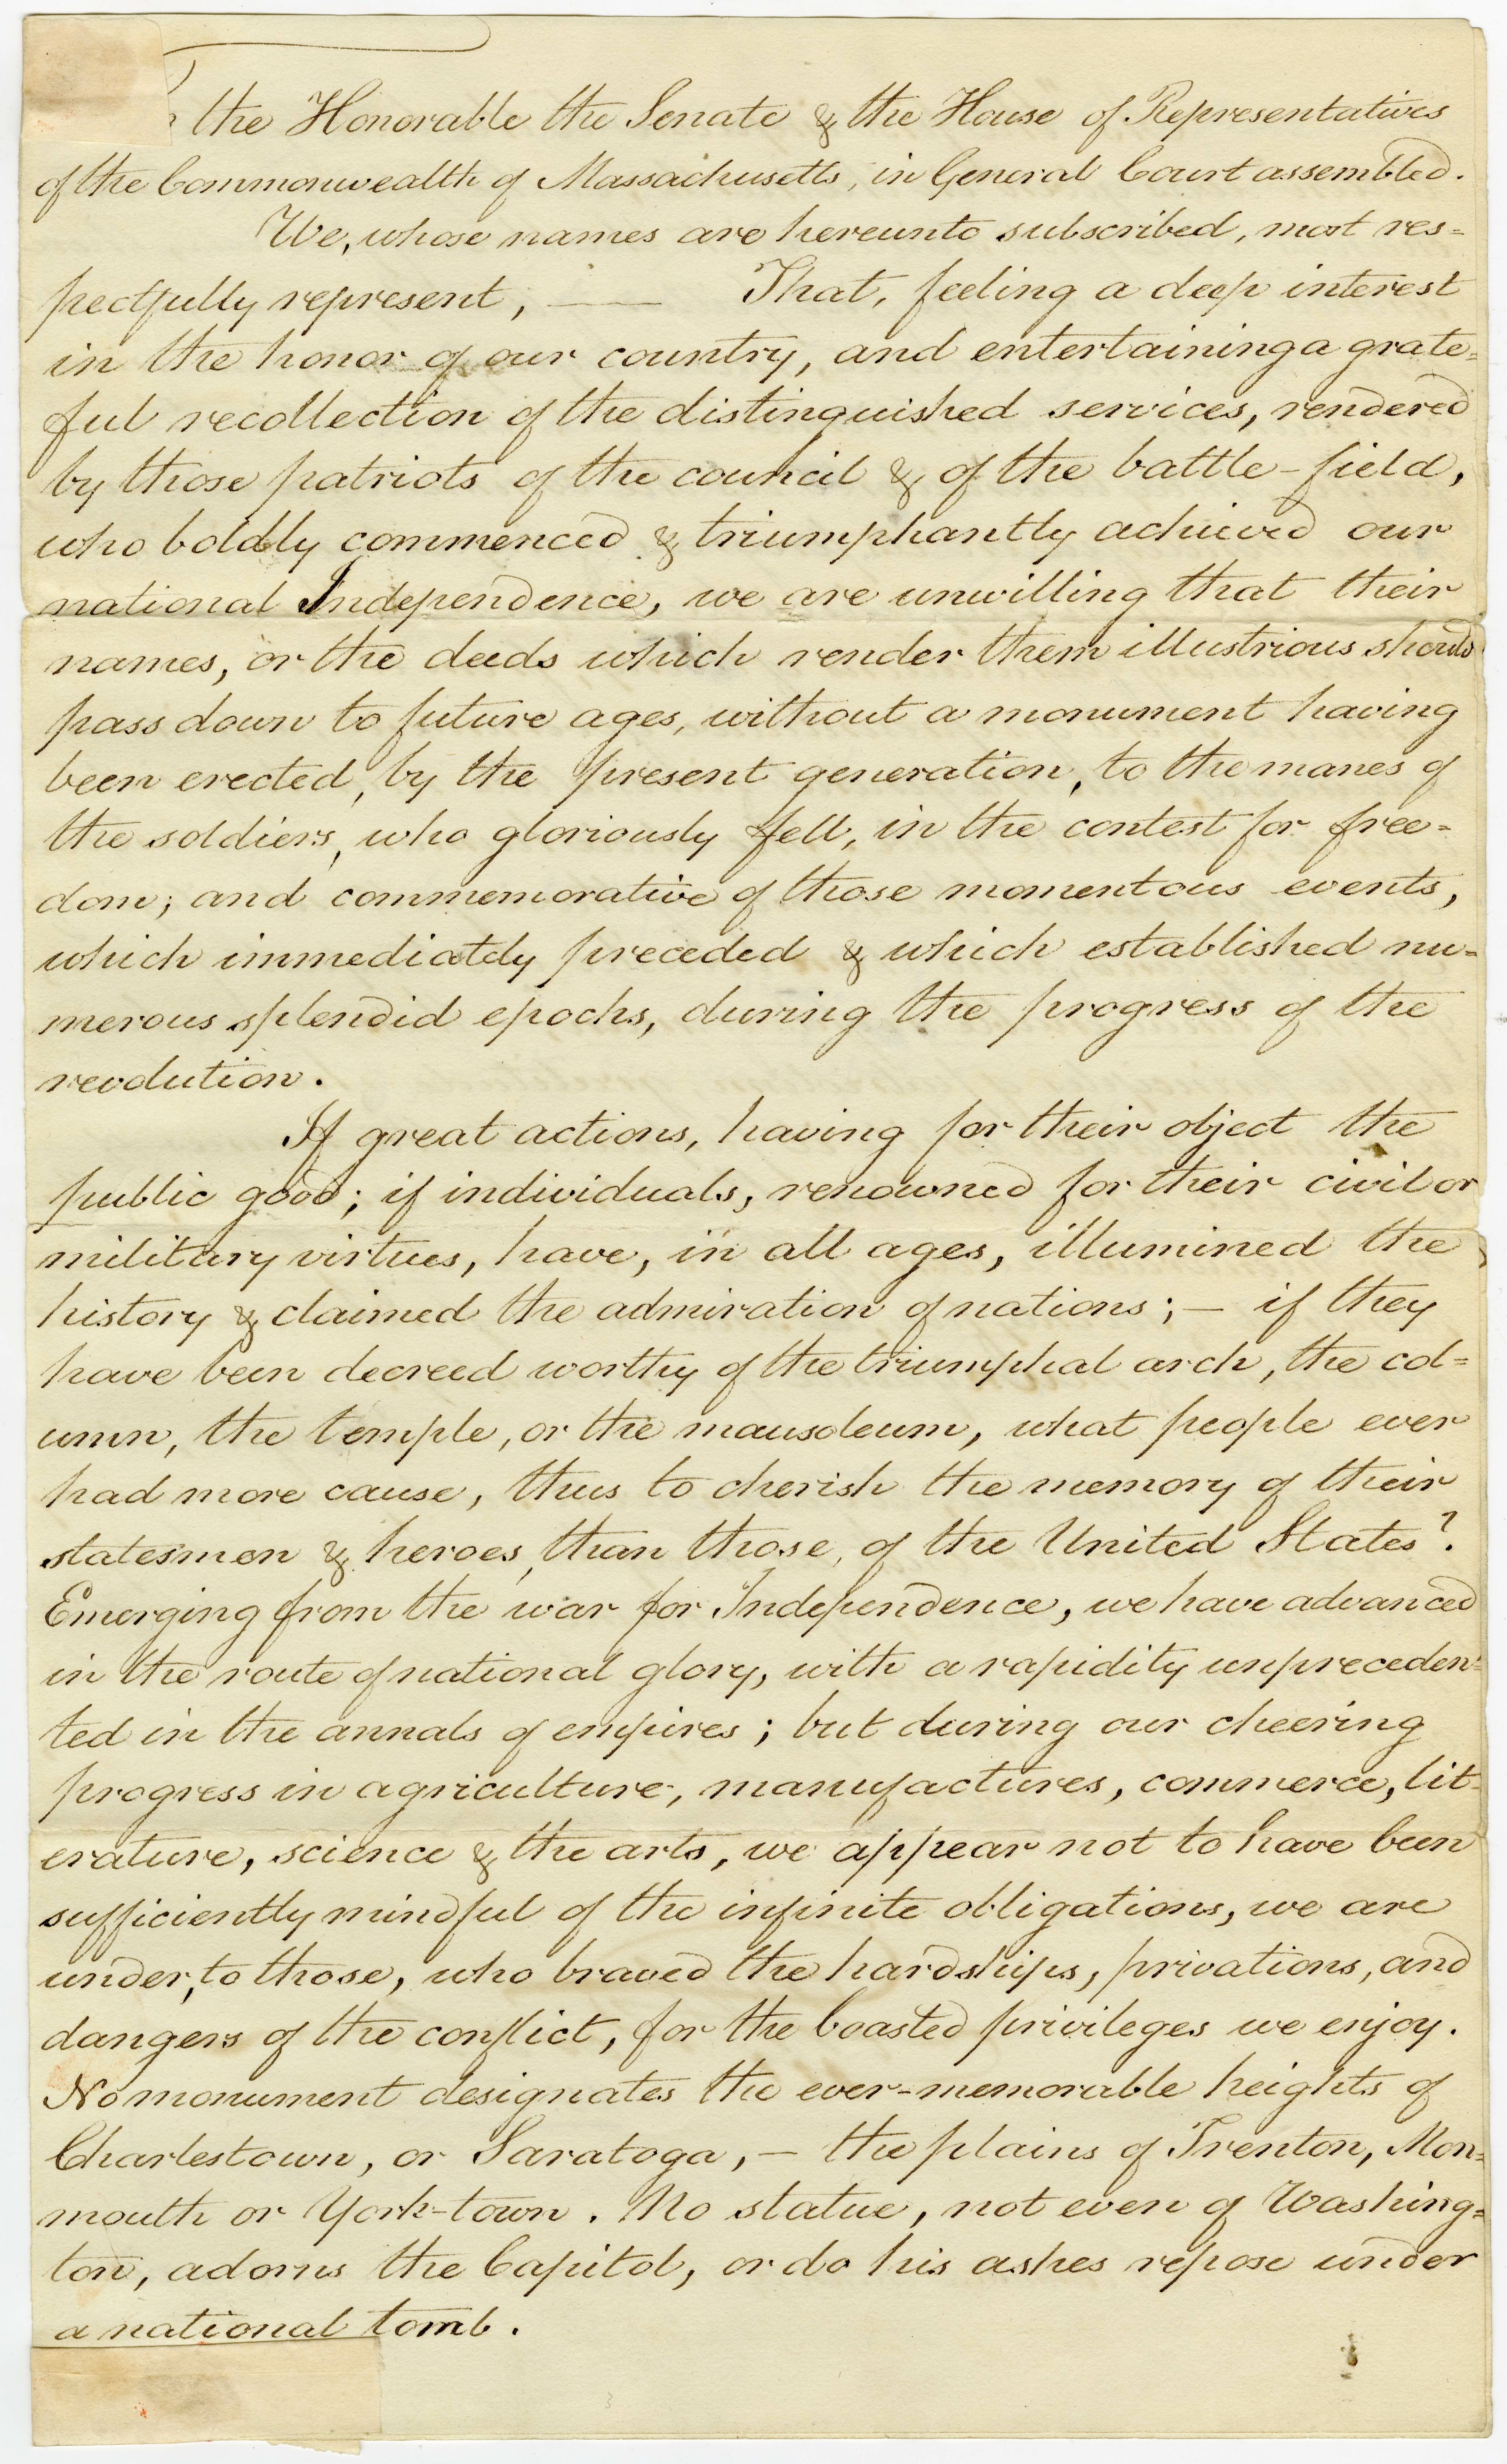 the Honorable the Senate & the House of Representatives
of the Commonwealth of Massachusetts, in General Court assembled.
We, whose names are hereunto subscribed, most res=
pectfully represent, — That, feeling a deep interest
in the honor of our country, and entertaining a grate=
ful recollection of the distinguished services, rendered
by those patriots of the council & of the battle-field,
who boldly commenced & triumphantly achieved our
national Independence, we are unwilling that their
names, or the deeds which render them illustrious should
pass down to future ages, without a monument having
been erected, by the present generation, to the manes of
the soldiers, who gloriously fell, in the contest for free=
dom; and commemorative of those momentous events,
which immediately preceded & which established nu=
merous splendid epochs, during the progress of the
revolution.
If great actions, having for their object the
public good; if individuals, renowned for their civil or
military virtues, have, in all ages, illumined the
history & claimed the admiration of nations; — if they
have been decreed worthy of the triumphal arch, the col=
umn, the temple, or the mausoleum, what people ever
had more cause, thus to cherish the memory of their
statesmen & heroes, than those, of the United States?
Emerging from the war for Independence, we have advanced
in the route of national glory, with a rapidity unpreceden=
ted in the annals of empires; but during our cheering
progress in agriculture, manufactures, commerce, lit=
erature, science & the arts, we appear not to have been
sufficiently mindful of the infinite obligations, we are
under, to those, who braved the hardships, privations, and
dangers of the conflict, for the boasted privileges we enjoy.
No monument designates the ever-memorable heights of
Charlestown, or Saratoga, — the plains of Trenton, Mon=
mouth or York-town. No statue, not even of Washing=
ton, adorns the Capitol, or do his ashes repose under
a national tomb.